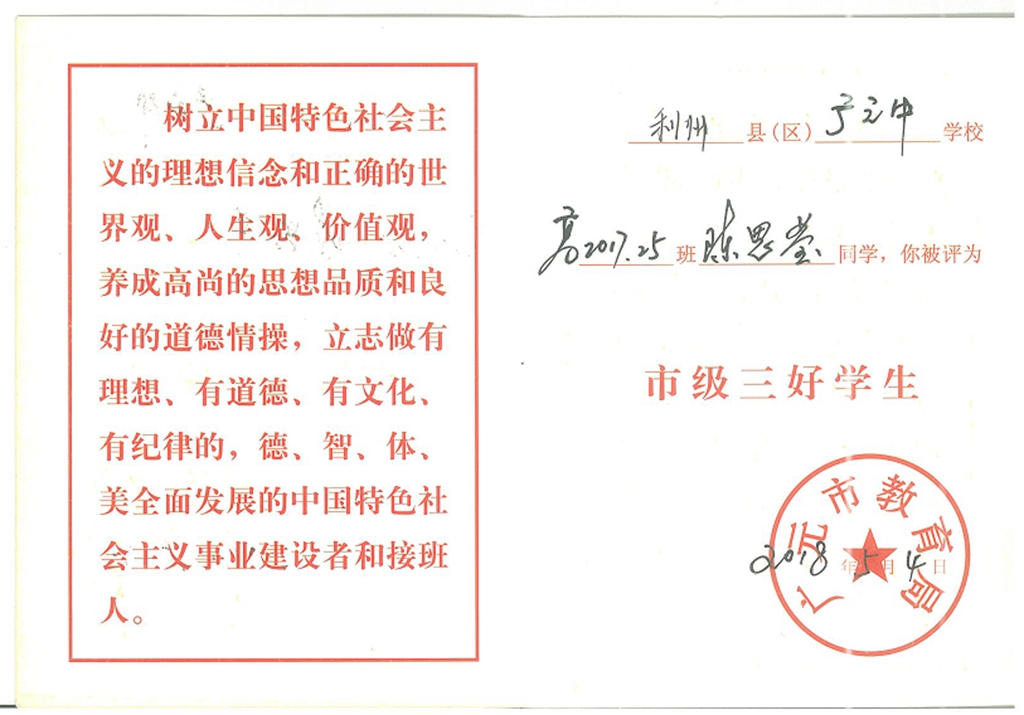 树立中国特色社会主
义的理想信念和正确的世
界观、人生观、价值观，
养成高尚的思想品质和良
好的道德情操，立志做有
理想、有道德、有文化、
有纪律的，德、智、体、
美全面发展的中国特色社
会主义事业建设者和接班
人。
利州县（区）广元中学校
高2017.25班陈思莹同学，你被评为
市级三好学生
广元市教育局
2018年5月4日